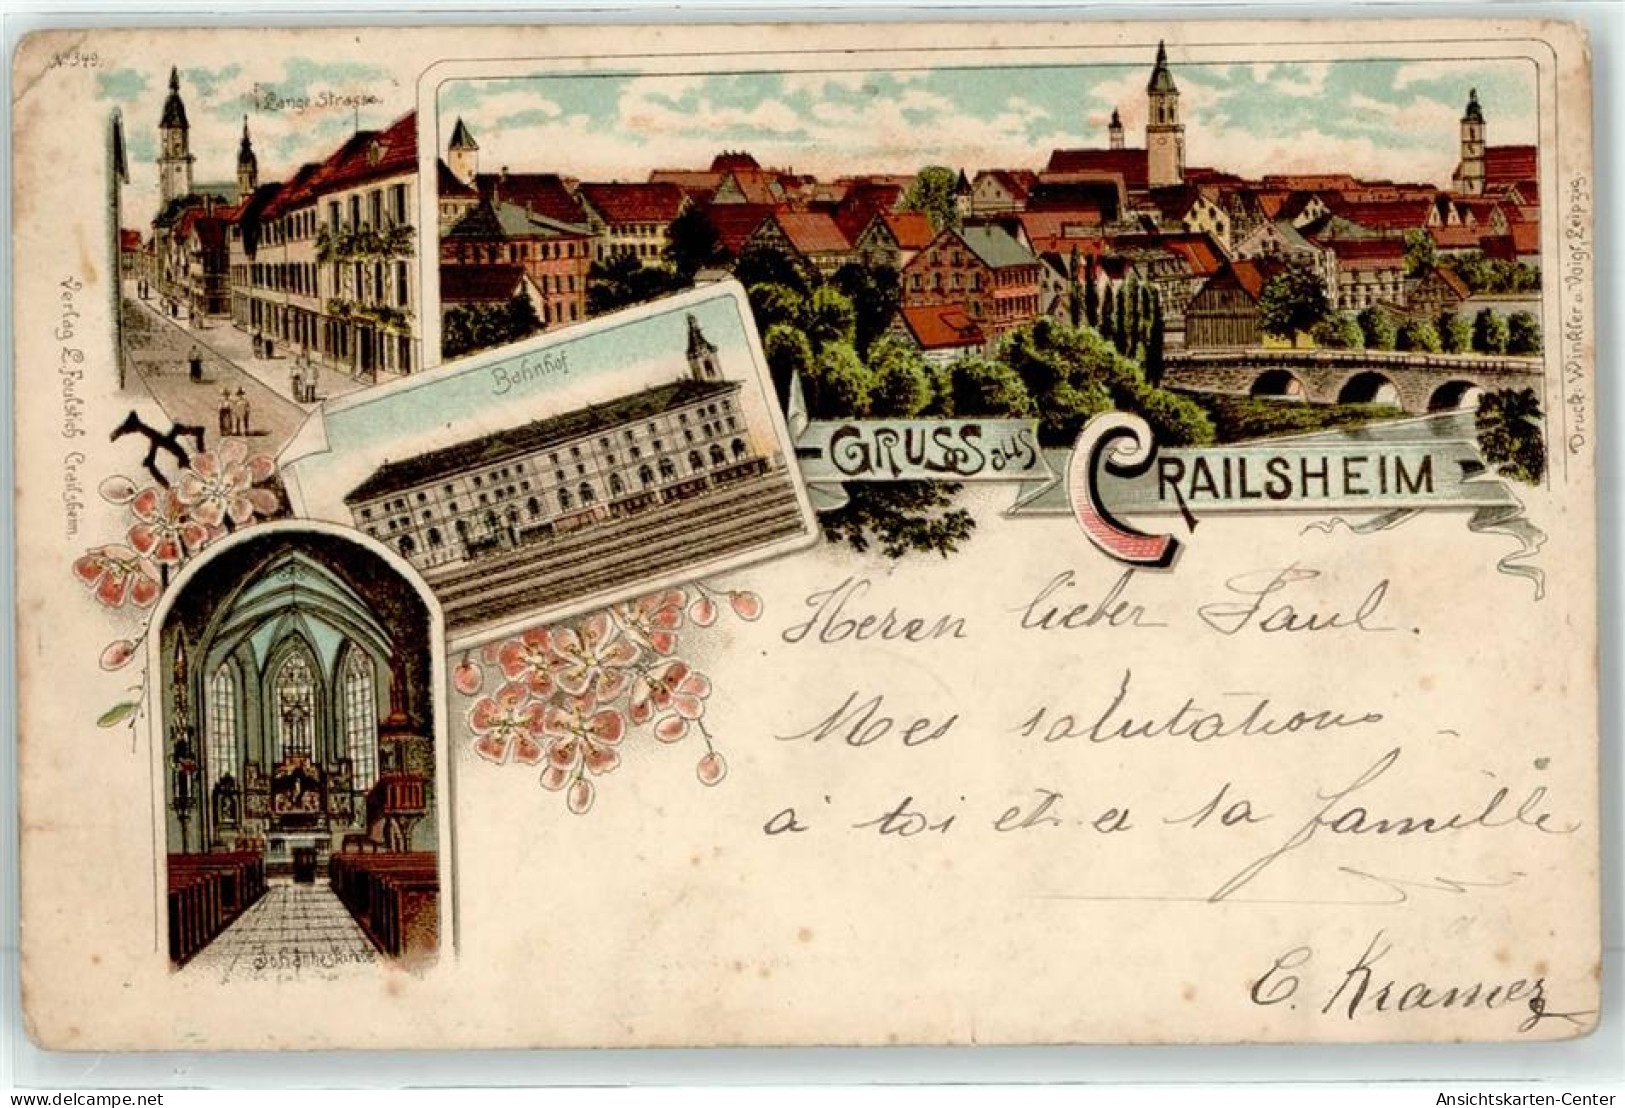 No 349.
Lange Strasse.
Bahnhof
GRUSS aus
CRAILSHEIM
Johanneskirche
Verlag E. Faulstich Crailsheim.
Druck: Winkler u. Voigt, Leipzig.
Herrn lieber Paul.
Mes salutations
a toi et a ta famille
C. Kramer
Ansichtskarten-Center